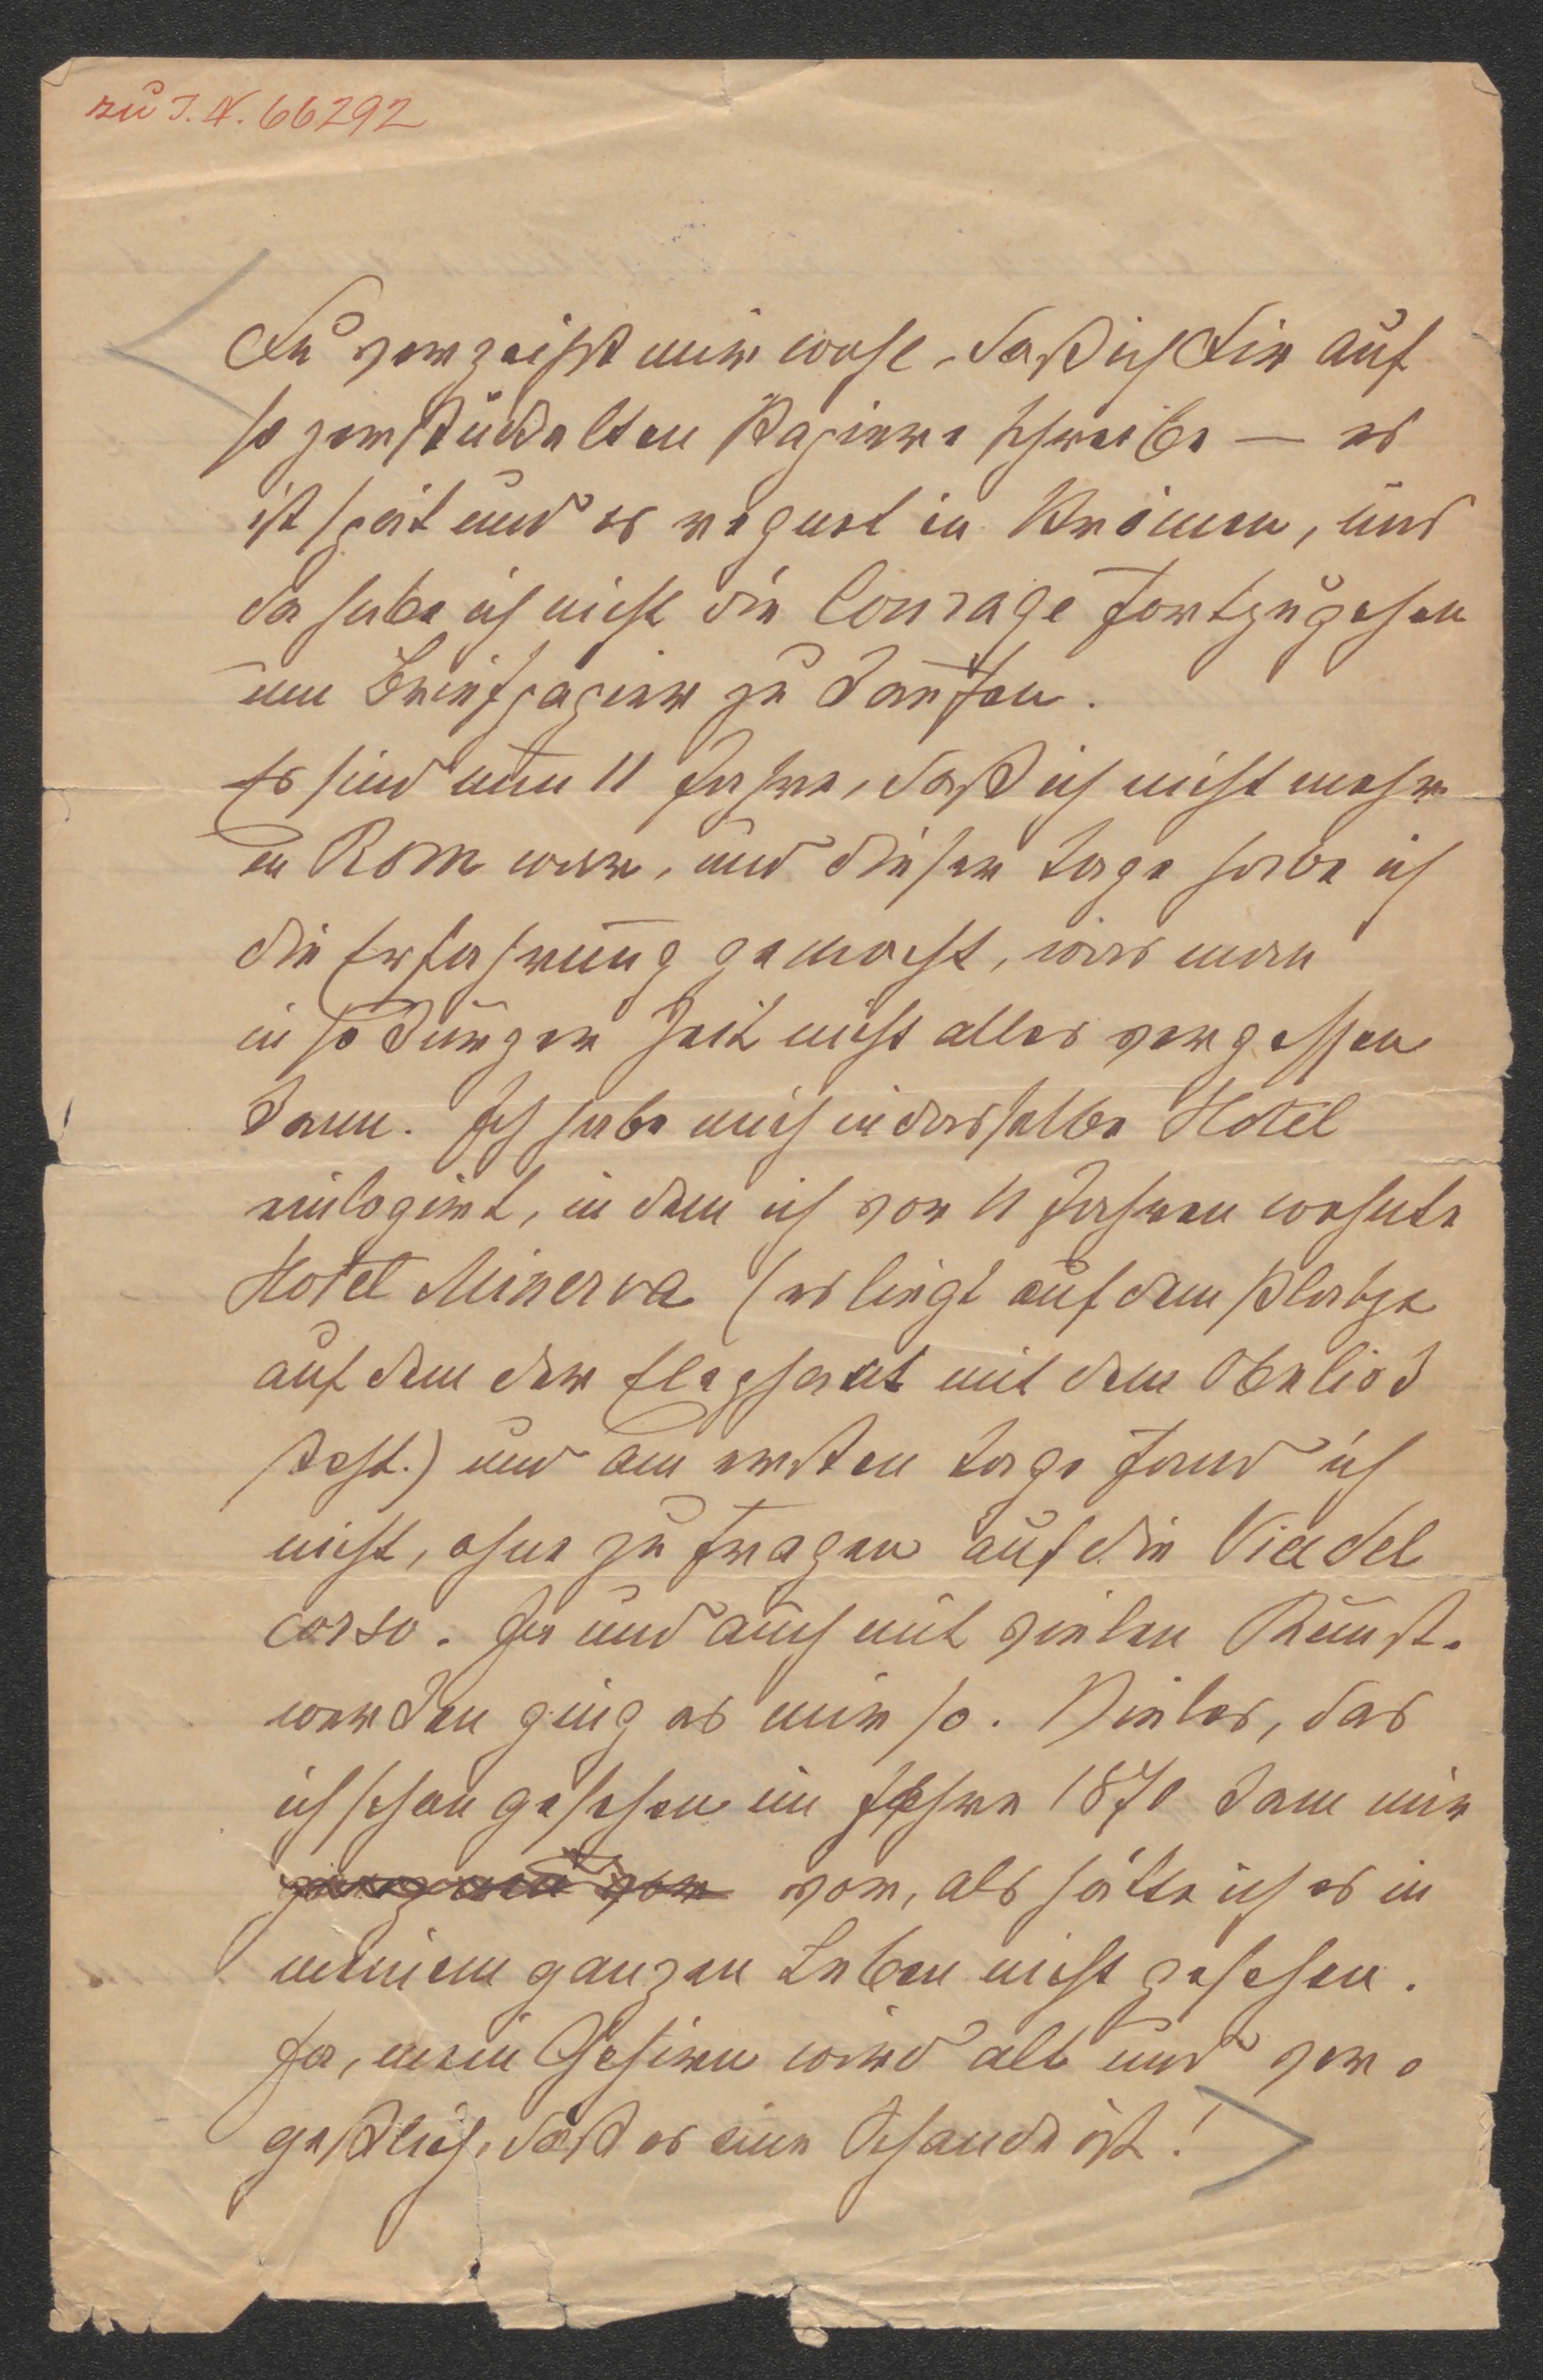 zu I. N. 66292
Du verzeihst mir wohl, daß ich Dir auf
so zerstückelten Papiere schreibe — es
ist spät und es regnet in Strömen, und
da habe ich nicht die Courage fortzugehen
um Briefpapier zu kaufen.
Es sind nun 11 Jahre, daß ich nicht mehr
in Rom war, und dieser Tage habe ich
die Erfahrung gemacht, was man
in so kurzer Zeit nicht alles vergessen
kann. Ich habe mich in dasselbe Hotel
einlogirt, in dem ich vor 11 Jahren wohnte
Hotel Minerva (es liegt auf dem Platze
auf dem der Elephant mit dem Obelisk
steht.) und am ersten Tage fand ich
nicht, ohne zu fragen auf die Via del
corso. Ja und auch mit vielen Kunst-
werken ging es mir so. Vieles, das
ich schon gesehen im Jahre 1870 kam mir
ganz neu vor vor, als hätte ich es in
meinem ganzen Leben nicht gesehen.
Ja, mein Gehirn wird alt und ver-
geßlich, daß es eine Schande ist!